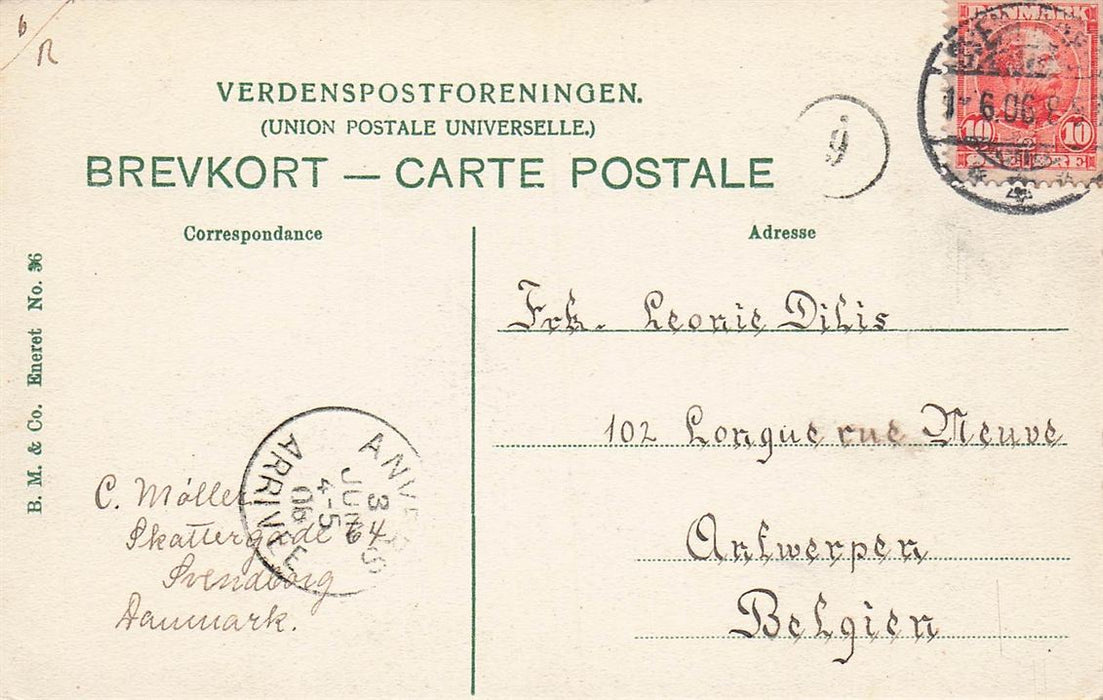 6
R
VERDENSPOSTFORENINGEN.
(UNION POSTALE UNIVERSELLE.)
BREVKORT — CARTE POSTALE
9
6.06
10 10
Correspondance
Adresse
B. M. & Co. Eneret No. 36
Frk. Leonie Dilis
102 Longue rue Neuve
Antwerpen
Belgien
ANVERS
ARRIVÉE
3
JUIN
4-5
06
C. Møller
Skattergade 4
Svendborg
Danmark.